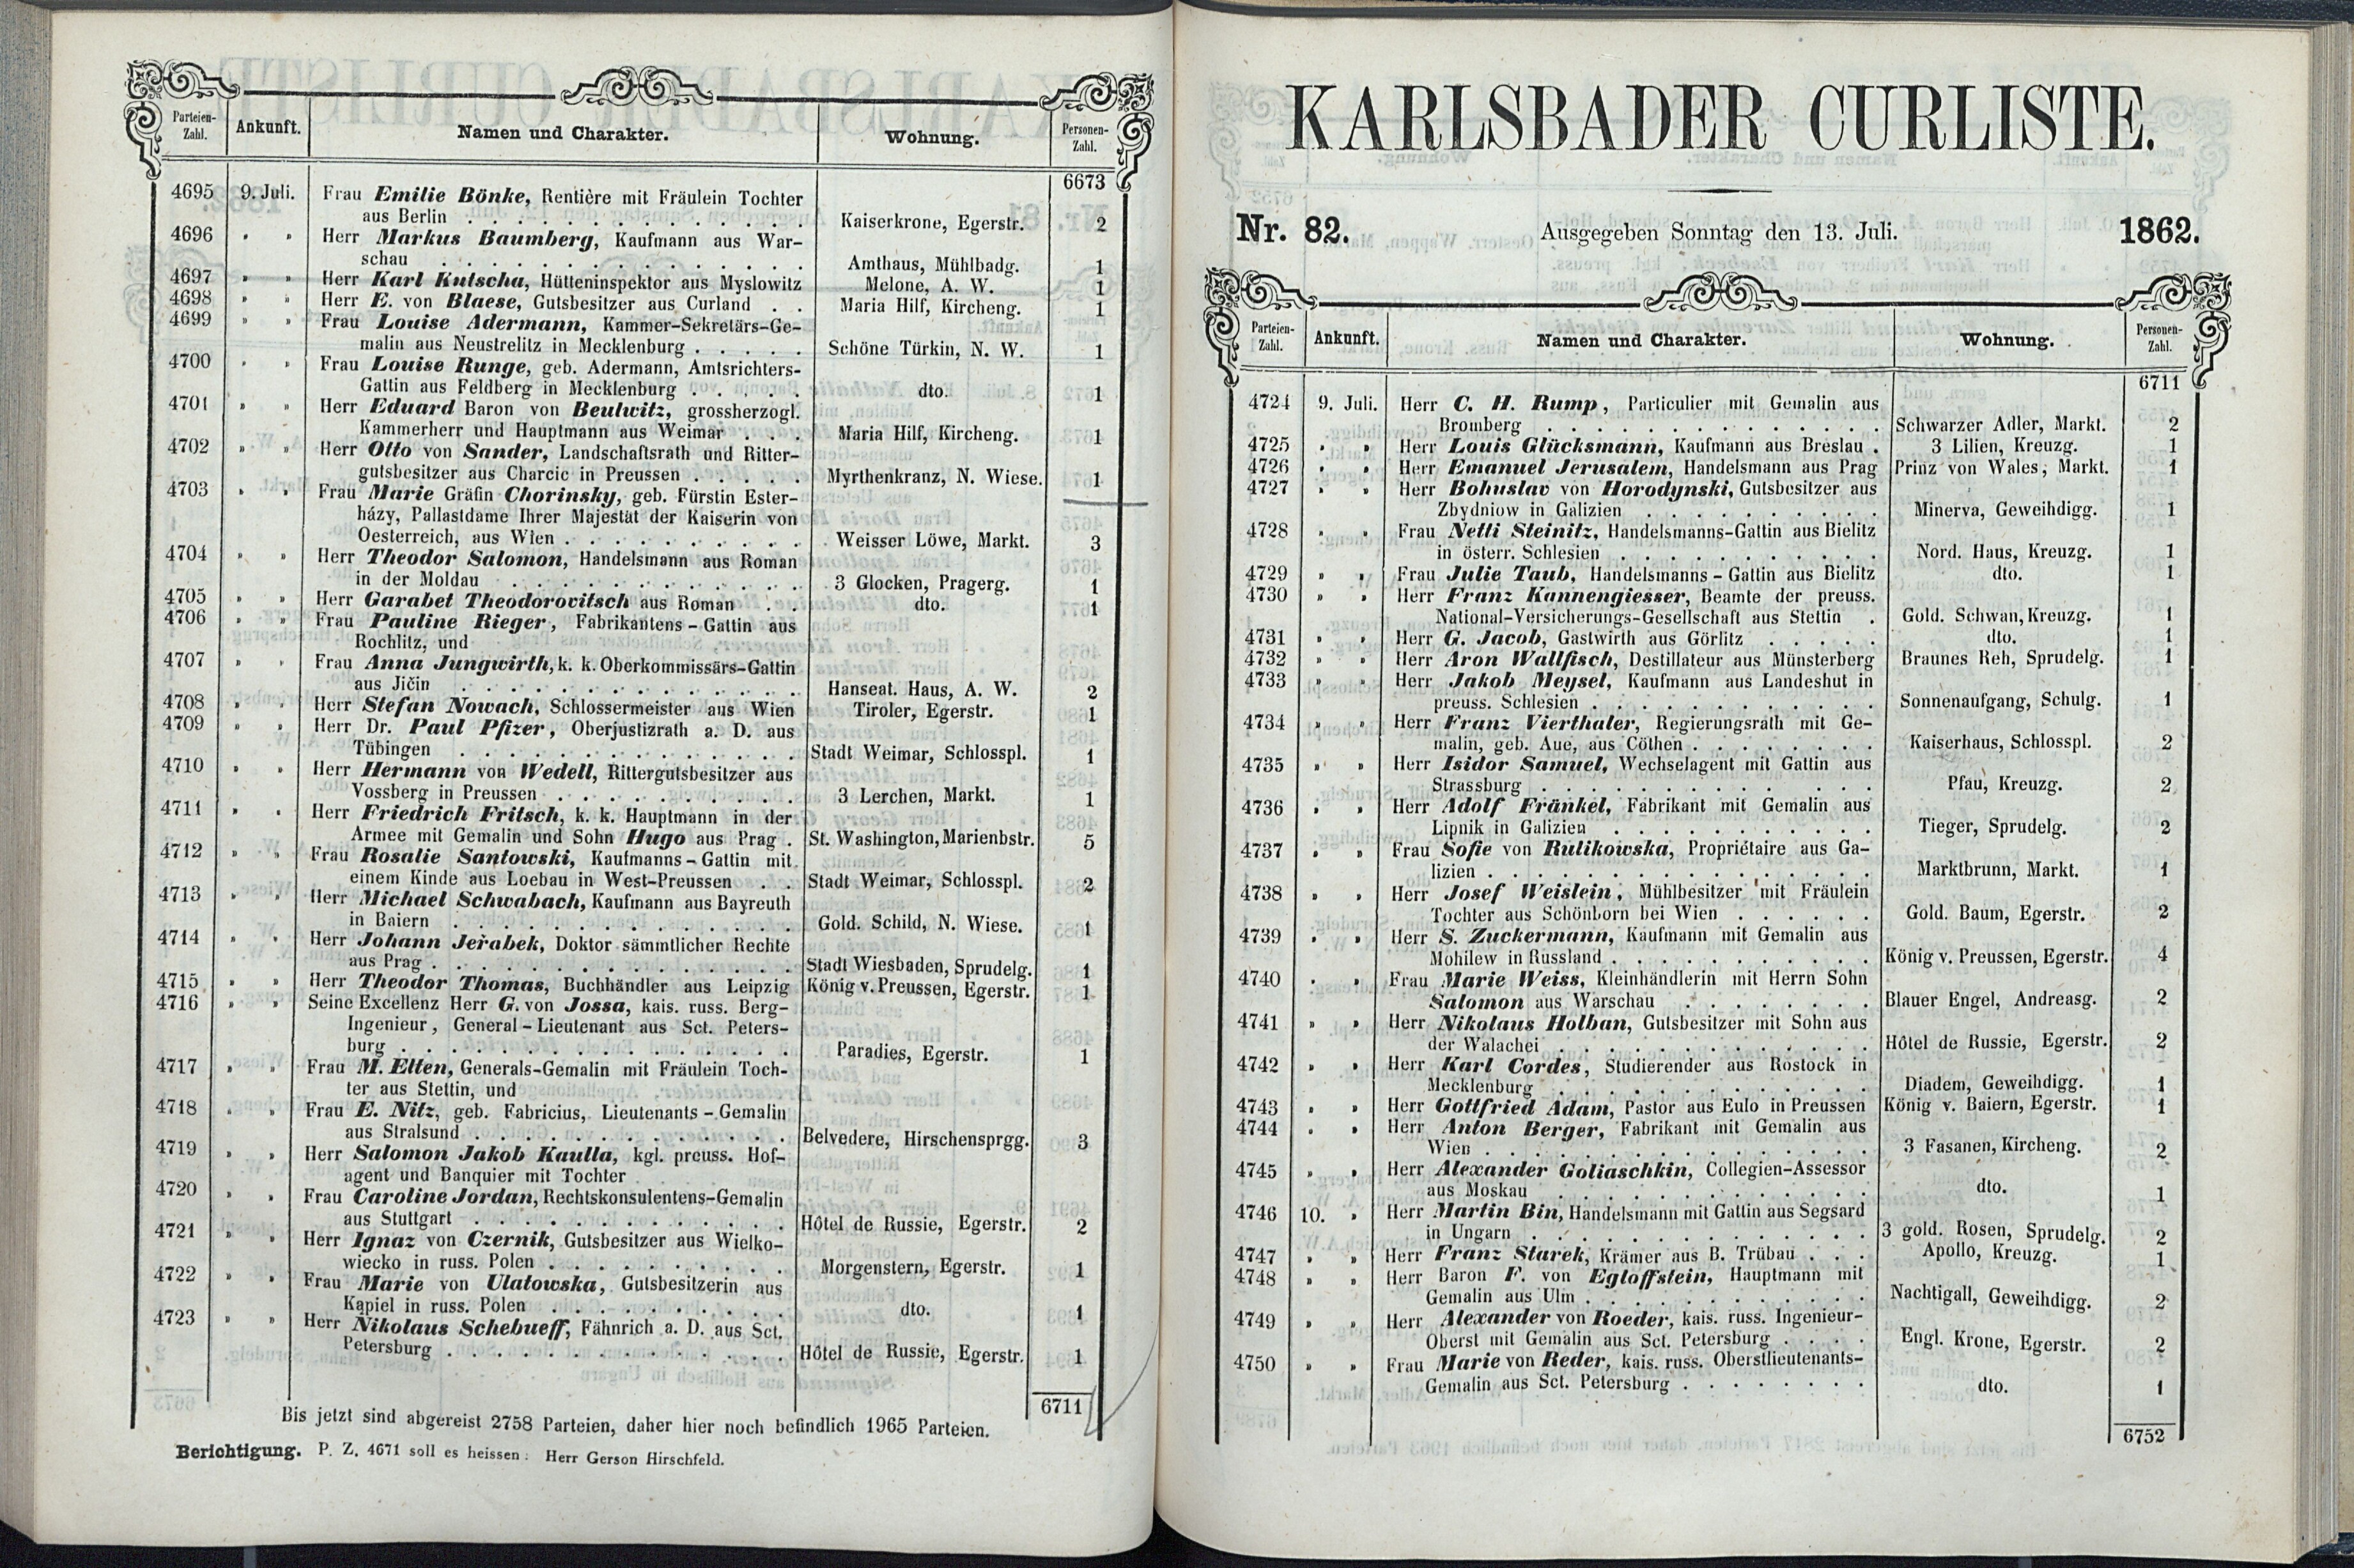 Parteien-
Zahl.
Ankunft.
Namen und Charakter.
Wohnung.
Personen-
Zahl.
6673
4695 9. Juli. Frau Emilie Bönke, Rentière mit Fräulein Tochter
aus Berlin . . . Kaiserkrone, Egerstr. 2
4696 „ „ Herr Markus Baumberg, Kaufmann aus War-
schau . . . Amthaus, Mühlbadg. 1
4697 „ „ Herr Karl Kutscha, Hütteninspektor aus Myslowitz Melone, A. W. 1
4698 „ „ Herr E. von Blaese, Gutsbesitzer aus Curland . . Maria Hilf, Kircheng. 1
4699 „ „ Frau Louise Adermann, Kammer-Sekretärs-Ge-
malin aus Neustrelitz in Mecklenburg . . . Schöne Türkin, N. W. 1
4700 „ „ Frau Louise Runge, geb. Adermann, Amtsrichters-
Gattin aus Feldberg in Mecklenburg . . . dto. 1
4701 „ „ Herr Eduard Baron von Beulwitz, grossherzogl.
Kammerherr und Hauptmann aus Weimar . . . Maria Hilf, Kircheng. 1
4702 „ „ Herr Otto von Sander, Landschaftsrath und Ritter-
gutsbesitzer aus Charcic in Preussen . . . Myrthenkranz, N. Wiese. 1
4703 „ „ Frau Marie Gräfin Chorinsky, geb. Fürstin Ester-
házy, Pallastdame Ihrer Majestät der Kaiserin von
Oesterreich, aus Wien . . . Weisser Löwe, Markt. 3
4704 „ „ Herr Theodor Salomon, Handelsmann aus Roman
in der Moldau . . . 3 Glocken, Pragerg. 1
4705 „ „ Herr Garabet Theodorovitsch aus Roman . . dto. 1
4706 „ „ Frau Pauline Rieger, Fabrikantens-Gattin aus
Rochlitz, und
4707 „ „ Frau Anna Jungwirth, k. k. Oberkommissärs-Gattin
aus Jičin . . . Hanseat. Haus, A. W. 2
4708 „ „ Herr Stefan Nowach, Schlossermeister aus Wien Tiroler, Egerstr. 1
4709 „ „ Herr Dr. Paul Pfizer, Oberjustizrath a. D. aus
Tübingen . . . Stadt Weimar, Schlosspl. 1
4710 „ „ Herr Hermann von Wedell, Rittergutsbesitzer aus
Vossberg in Preussen . . . 3 Lerchen, Markt. 1
4711 „ „ Herr Friedrich Fritsch, k. k. Hauptmann in der
Armee mit Gemalin und Sohn Hugo aus Prag . St. Washington, Marienbstr. 5
4712 „ „ Frau Rosalie Santowski, Kaufmanns-Gattin mit
einem Kinde aus Loebau in West-Preussen . . Stadt Weimar, Schlosspl. 2
4713 „ „ Herr Michael Schwabach, Kaufmann aus Bayreuth
in Baiern . . . Gold. Schild, N. Wiese. 1
4714 „ „ Herr Johann Jeřabek, Doktor sämmtlicher Rechte
aus Prag . . . Stadt Wiesbaden, Sprudelg. 1
4715 „ „ Herr Theodor Thomas, Buchhändler aus Leipzig König v. Preussen, Egerstr. 1
4716 „ „ Seine Excellenz Herr G. von Jossa, kais. russ. Berg-
Ingenieur, General-Lieutenant aus Sct. Peters-
burg . . . Paradies, Egerstr. 1
4717 „ „ Frau M. Elten, Generals-Gemalin mit Fräulein Toch-
ter aus Stettin, und
4718 „ „ Frau E. Nitz, geb. Fabricius, Lieutenants-Gemalin
aus Stralsund . . . Belvedere, Hirschensprgg. 3
4719 „ „ Herr Salomon Jakob Kaulla, kgl. preuss. Hof-
agent und Banquier mit Tochter
4720 „ „ Frau Caroline Jordan, Rechtskonsulentens-Gemalin
aus Stuttgart . . . Hôtel de Russie, Egerstr. 2
4721 „ „ Herr Ignaz von Czernik, Gutsbesitzer aus Wielko-
wiecko in russ. Polen . . . Morgenstern, Egerstr. 1
4722 „ „ Frau Marie von Ulatowska, Gutsbesitzerin aus
Kapiel in russ. Polen . . . dto. 1
4723 „ „ Herr Nikolaus Schebueff, Fähnrich a. D. aus Sct.
Petersburg . . . Hôtel de Russie, Egerstr. 1
6711
Bis jetzt sind abgereist 2758 Parteien, daher hier noch befindlich 1965 Parteien.
Berichtigung. P. Z. 4671 soll es heissen: Herr Gerson Hirschfeld.
KARLSBADER CURLISTE.
Nr. 82. Ausgegeben Sonntag den 13. Juli. 1862.
Parteien-
Zahl.
Ankunft.
Namen und Charakter.
Wohnung.
Personen-
Zahl.
6711
4724 9. Juli. Herr C. H. Rump, Particulier mit Gemalin aus
Bromberg . . . Schwarzer Adler, Markt. 2
4725 „ „ Herr Louis Glücksmann, Kaufmann aus Breslau . 3 Lilien, Kreuzg. 1
4726 „ „ Herr Emanuel Jerusalem, Handelsmann aus Prag Prinz von Wales, Markt. 1
4727 „ „ Herr Bohuslav von Horodynski, Gutsbesitzer aus
Zbydniow in Galizien . . . Minerva, Geweihdigg. 1
4728 „ „ Frau Netti Steinitz, Handelsmanns-Gattin aus Bielitz
in österr. Schlesien . . . Nord. Haus, Kreuzg. 1
4729 „ „ Frau Julie Taub, Handelsmanns-Gattin aus Bielitz dto. 1
4730 „ „ Herr Franz Kannengiesser, Beamte der preuss.
National-Versicherungs-Gesellschaft aus Stettin . Gold. Schwan, Kreuzg. 1
4731 „ „ Herr G. Jacob, Gastwirth aus Görlitz . . . dto. 1
4732 „ „ Herr Aron Wallfisch, Destillateur aus Münsterberg Braunes Reh, Sprudelg. 1
4733 „ „ Herr Jakob Meysel, Kaufmann aus Landeshut in
preuss. Schlesien . . . Sonnenaufgang, Schulg. 1
4734 „ „ Herr Franz Vierthaler, Regierungsrath mit Ge-
malin, geb. Aue, aus Cöthen . . . Kaiserhaus, Schlosspl. 2
4735 „ „ Herr Isidor Samuel, Wechselagent mit Gattin aus
Strassburg . . . Pfau, Kreuzg. 2
4736 „ „ Herr Adolf Fränkel, Fabrikant mit Gemalin aus
Lipnik in Galizien . . . Tieger, Sprudelg. 2
4737 „ „ Frau Sofie von Rulikowska, Propriétaire aus Ga-
lizien . . . Marktbrunn, Markt. 1
4738 „ „ Herr Josef Weislein, Mühlbesitzer mit Fräulein
Tochter aus Schönborn bei Wien . . . Gold. Baum, Egerstr. 2
4739 „ „ Herr S. Zuckermann, Kaufmann mit Gemalin aus
Mohilew in Russland . . . König v. Preussen, Egerstr. 4
4740 „ „ Frau Marie Weiss, Kleinhändlerin mit Herrn Sohn
Salomon aus Warschau . . . Blauer Engel, Andreasg. 2
4741 „ „ Herr Nikolaus Holban, Gutsbesitzer mit Sohn aus
der Walachei . . . Hôtel de Russie, Egerstr. 2
4742 „ „ Herr Karl Cordes, Studierender aus Rostock in
Mecklenburg . . . Diadem, Geweihdigg. 1
4743 „ „ Herr Gottfried Adam, Pastor aus Eulo in Preussen König v. Baiern, Egerstr. 1
4744 „ „ Herr Anton Berger, Fabrikant mit Gemalin aus
Wien . . . 3 Fasanen, Kircheng. 2
4745 „ „ Herr Alexander Goliaschkin, Collegien-Assessor
aus Moskau . . . dto. 1
4746 10. „ Herr Martin Bin, Handelsmann mit Gattin aus Segsard
in Ungarn . . . 3 gold. Rosen, Sprudelg. 2
4747 „ „ Herr Franz Starek, Krämer aus B. Trübau . . . Apollo, Kreuzg. 1
4748 „ „ Herr Baron F. von Egloffstein, Hauptmann mit
Gemalin aus Ulm . . . Nachtigall, Geweihdigg. 2
4749 „ „ Herr Alexander von Roeder, kais. russ. Ingenieur-
Oberst mit Gemalin aus Sct. Petersburg . . . Engl. Krone, Egerstr. 2
4750 „ „ Frau Marie von Reder, kais. russ. Oberstlieutenants-
Gemalin aus Sct. Petersburg . . . dto. 1
6752